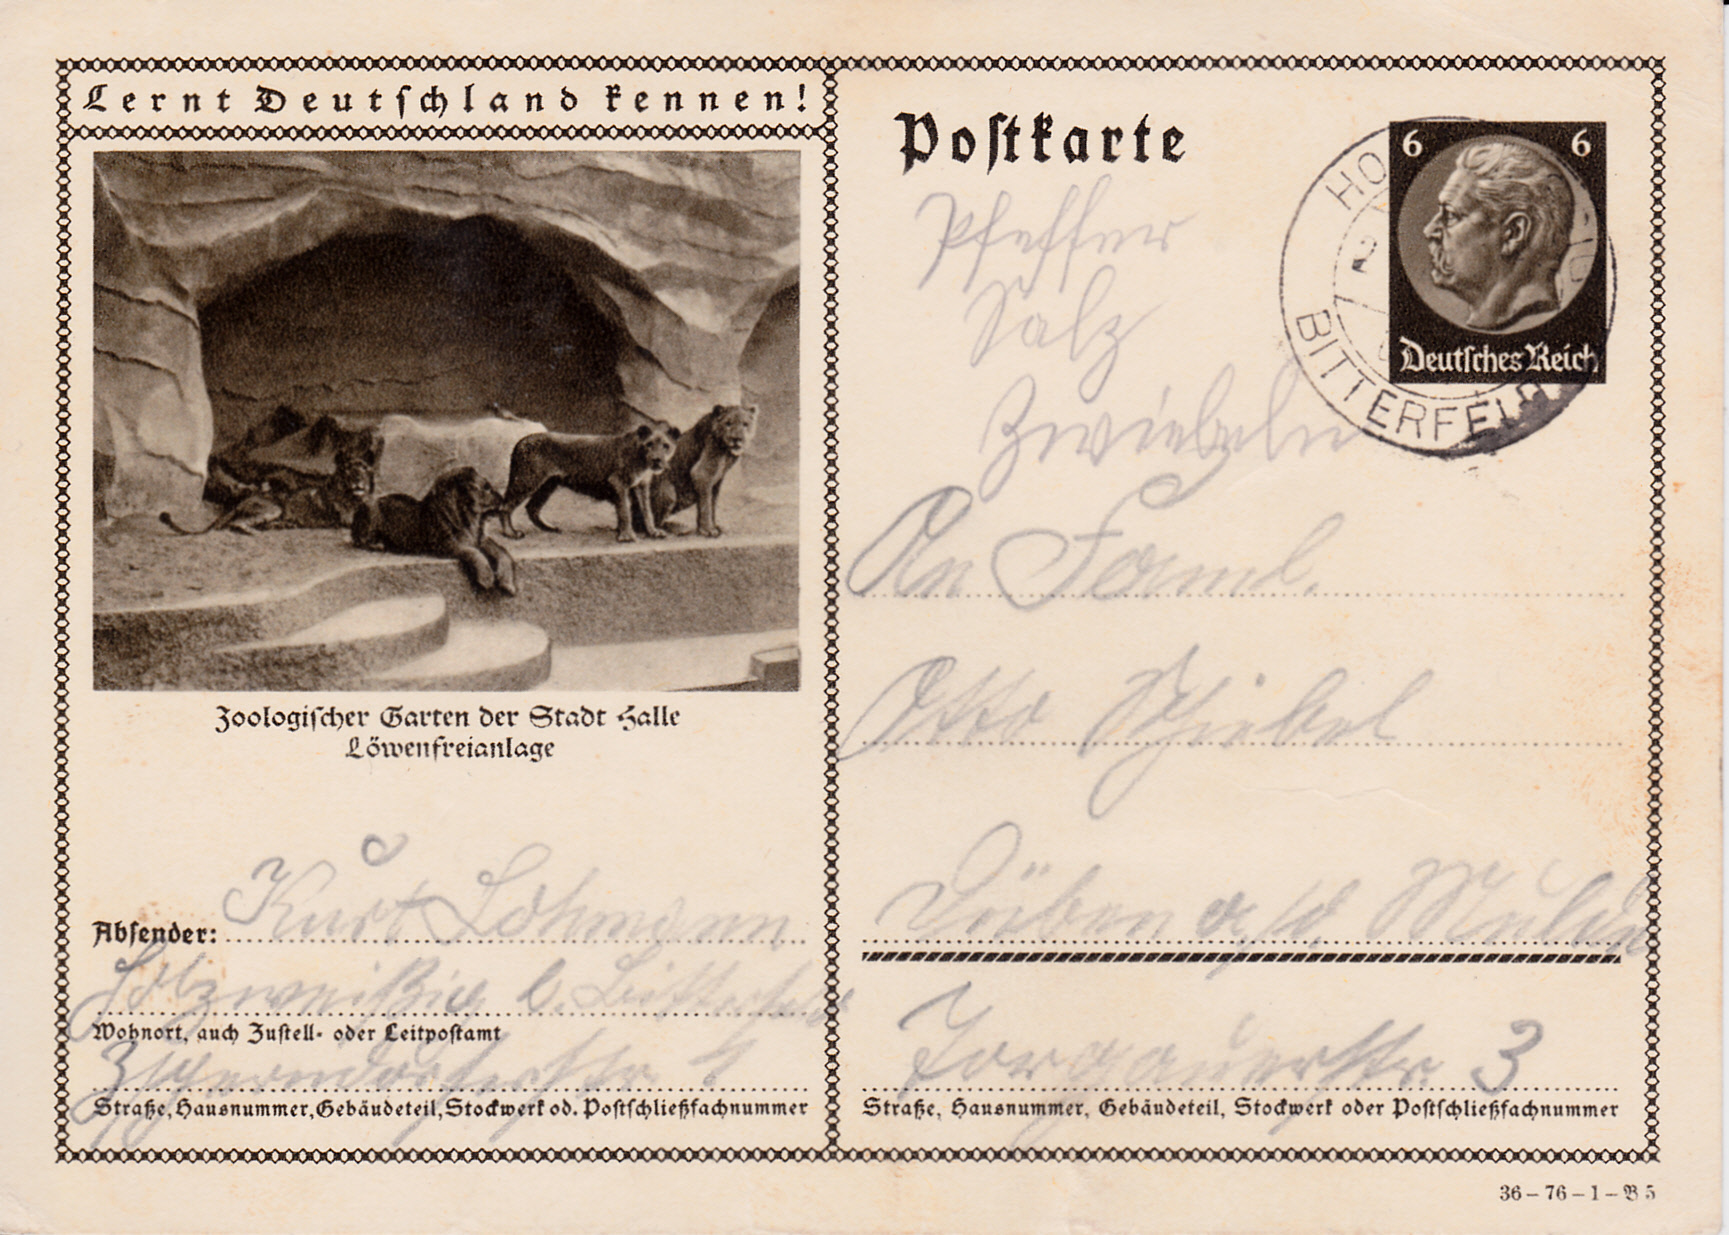 Lernt Deutschland kennen!
Zoologischer Garten der Stadt Halle
Löwenfreianlage
Absender: Kurt Lohmann
Holzweißig b. Bitterfeld
Wohnort, auch Zustell- oder Leitpostamt
Straße, Hausnummer, Gebäudeteil, Stockwerk od. Postschließfachnummer
Postkarte
6 6
Deutsches Reich
BITTERFELD
Pfeffer
Salz
Zwiebeln
An Faml.
Otto
Düben a/d. Mulde
Torgauerstr 3
Straße, Hausnummer, Gebäudeteil, Stockwerk oder Postschließfachnummer
36-76-1-B 5